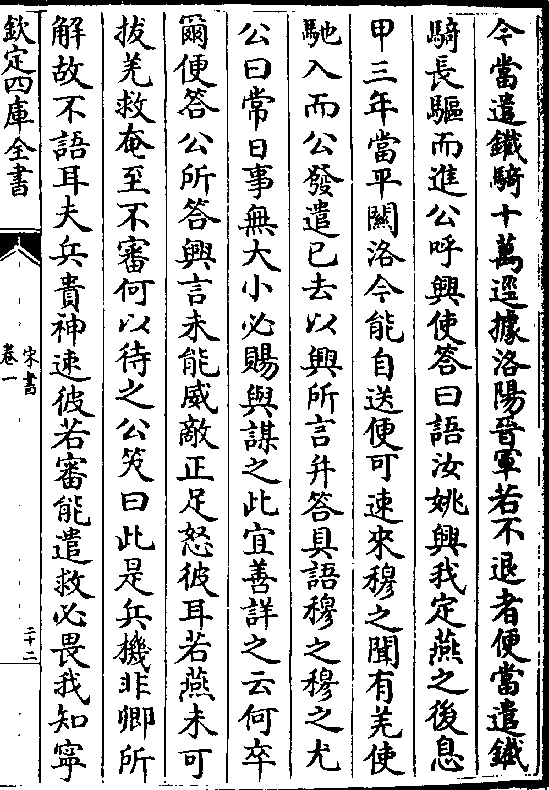 今當遣鐵騎十萬逕據洛陽晉軍若不退者便當遣鐵
騎長驅而進公呼興使答曰語汝姚興我定燕之後息
甲三年當平關洛今能自送便可速來穆之聞有羌使
馳入而公發遣已去以興所言并答具語穆之穆之尤
公曰常日事無大小必賜與謀之此宜善詳之云何卒
爾便答公所答興言未能威敵正足怒彼耳若燕未可
拔羌救奄至不審何以待之公笑曰此是兵機非卿所
解故不語耳夫兵貴神速彼若審能遣救必畏我知寧
欽定四庫全書
宋書
卷一
二十二